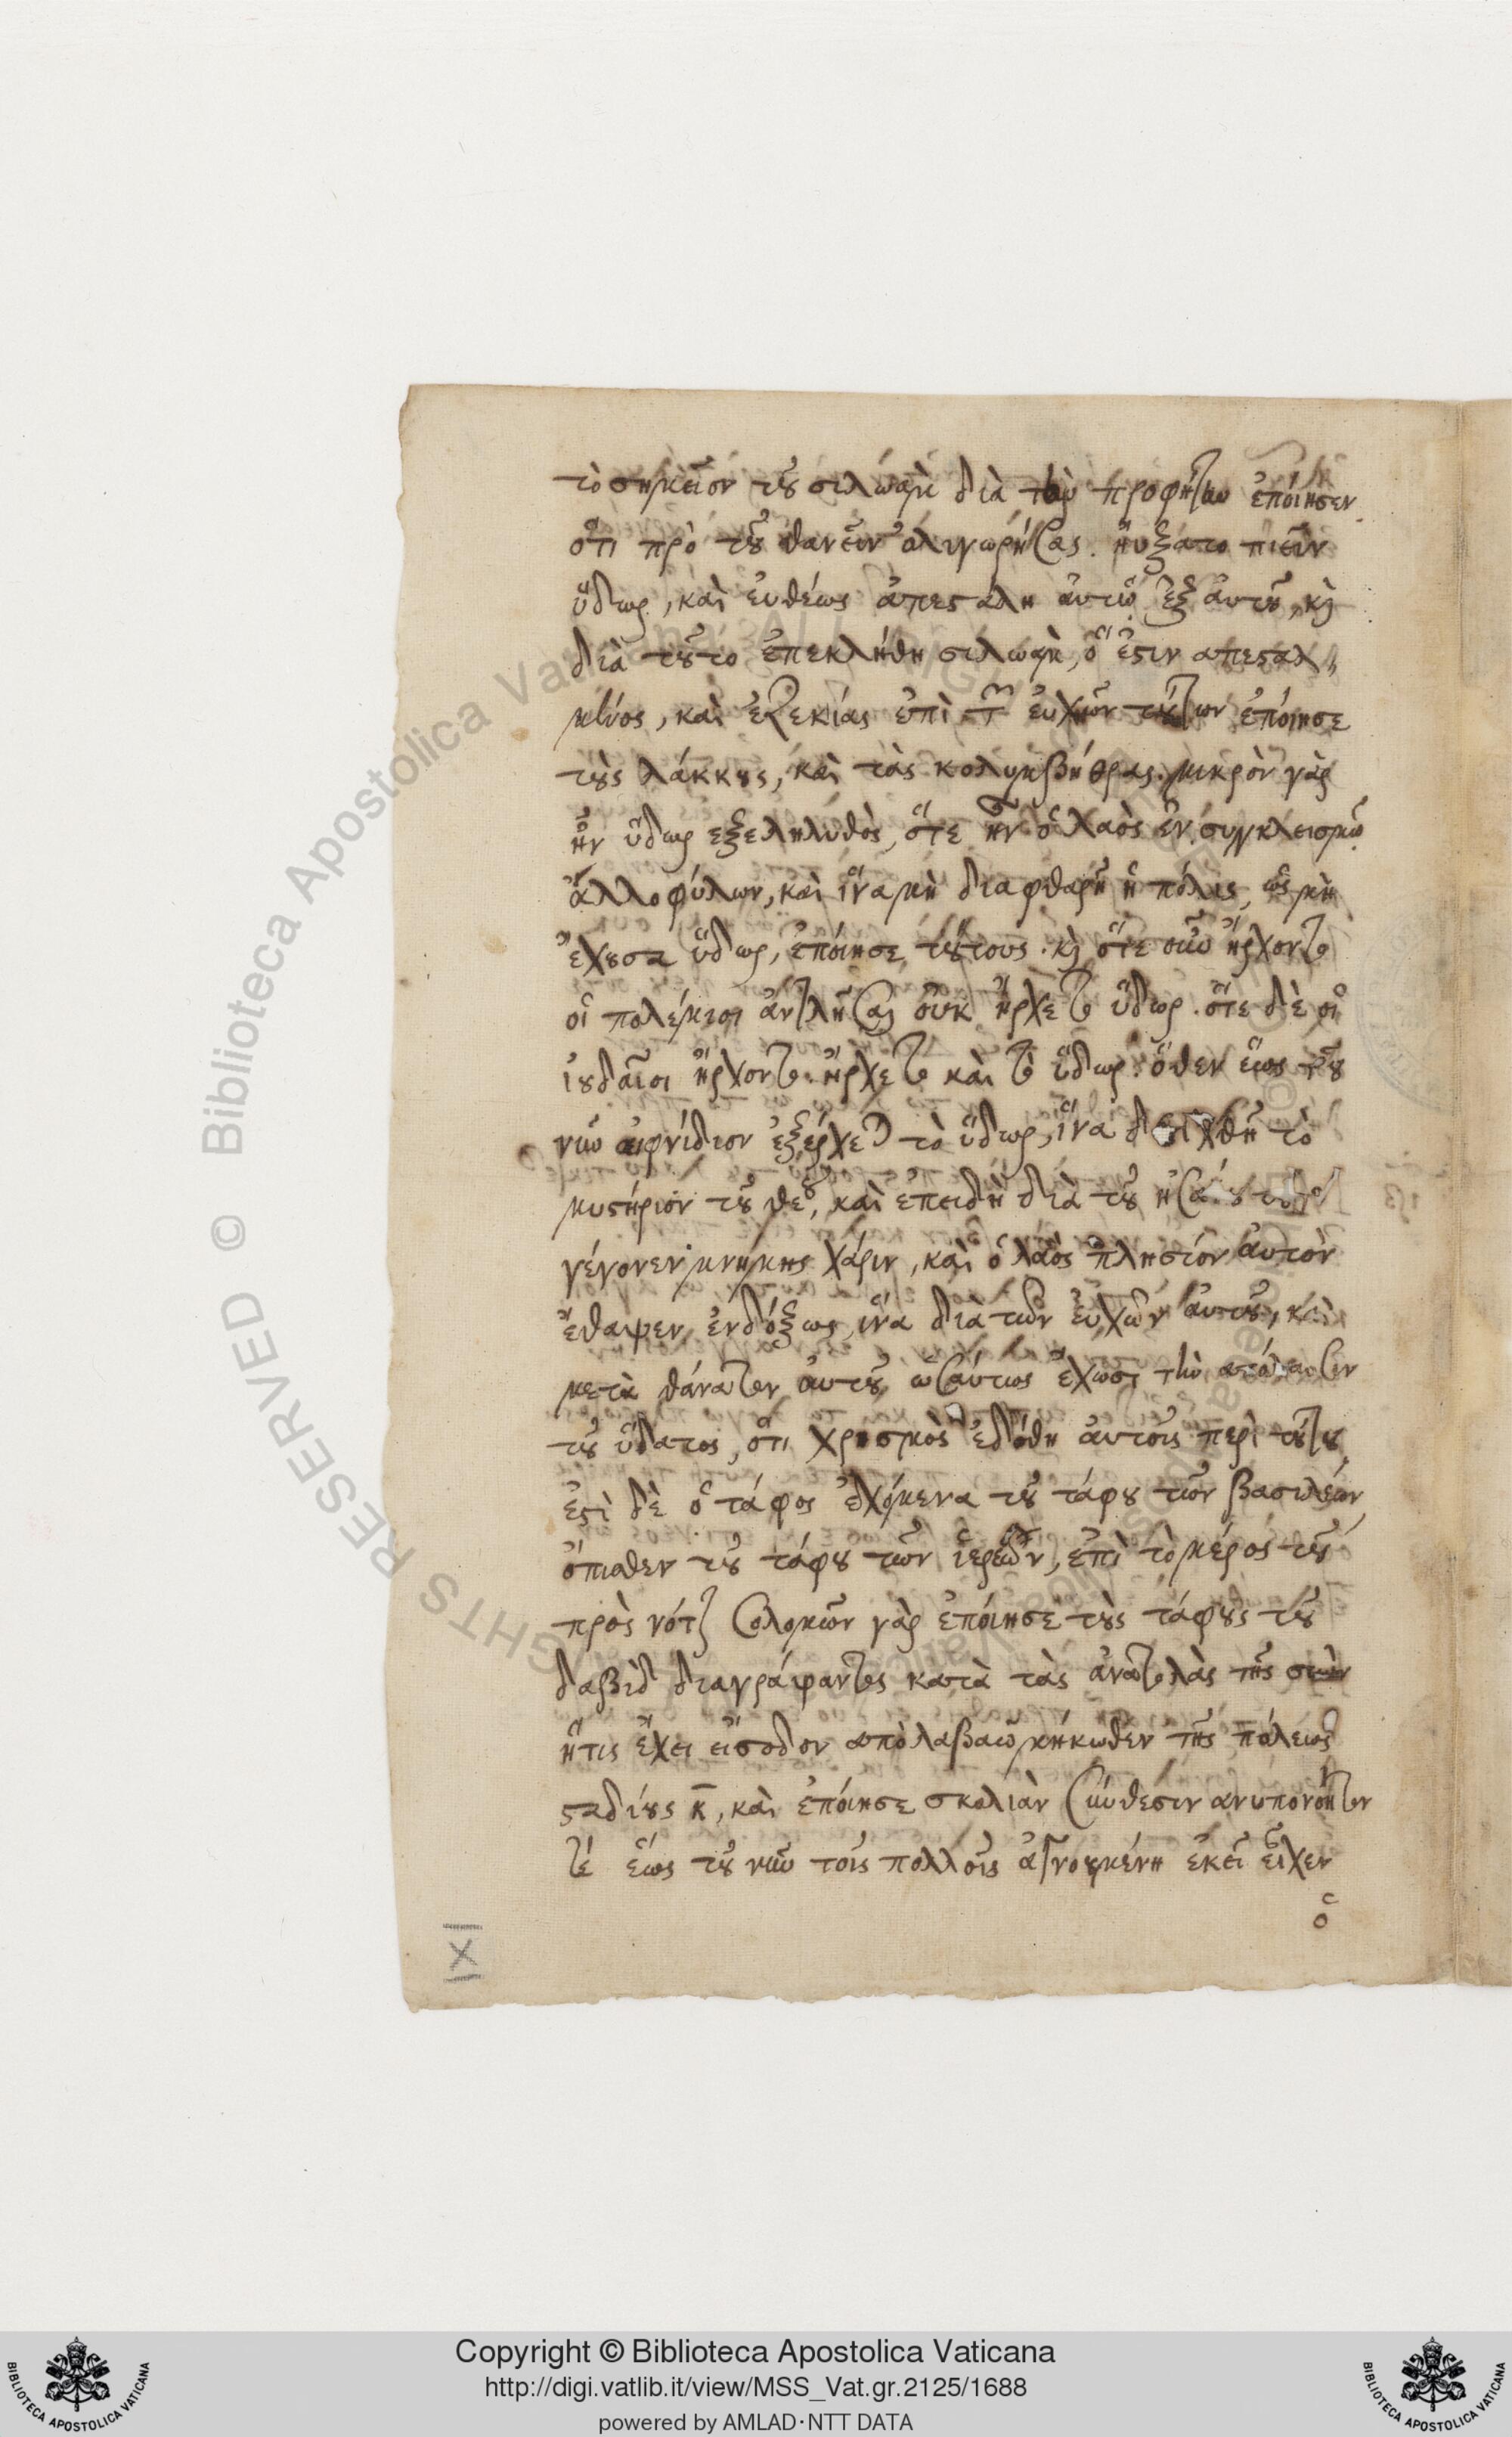 τὸ σημεῖον τοῦ σιλωὰμ διὰ τὸν προφήτην ἐποίησεν
ὅτι πρὸ τοῦ θανεῖν ὀλιγωρήσας. ηὔξατο πιεῖν
ὕδωρ, καὶ ἐυθέως ἀπεστάλη ἀυτῶ ἐξ ἀυτοῦ, κὶ
διὰ τοῦτο ἐπεκλήθη σιλωὰμ, ὅ ἐστιν απεσταλ,,
μένος, καὶ ἐζεκίας ἐπὶ τῶν ἐυχῶν τούτων ἐποίησε
τοὺς λάκκους, καὶ τὰς κολυμβήθρας. μικρὸν γὰρ
ἦν ὕδωρ εξεληλυθὸς, ὅτε ἦν ὁ λαὸς ἐν συγκλεισμῶ
ἀλλοφύλων, καὶ ἵνα μὴ διαφθαρῆ ἡ πόλις, ὡς μὴ
ἔχουσα ὕδωρ, ἐποίησε τούτους. κὶ ὅτε οὖν ἤρχοντο
οἱ πολέμιοι ἀντλῆσαι οὐκ ἤρχετο ὕδωρ. ὅτε δὲ οἱ
ἰουδαῖοι ἤρχοντο. ἤρχετο καὶ τὸ ὕδωρ. ὅθεν ἕως τοῦ
νῦν αἰφνίδιον ἐξέρχεται τὸ ὕδωρ, ἵνα δειχθῆ τὸ
μυστήριον τοῦ θεοῦ, καὶ ἐπειδὴ διὰ τοῦ ἡσαΐου τοῦτο
γέγονεν μνήμης χάριν, καὶ ὁ λαὸς πλησίον ἀυτὸν
ἔθαψεν ἐνδόξως, ἵνα διὰ τῶν ἐυχῶν ἀυτοῦ, καὶ
μετὰ θάνατον ἀυτοῦ ὡσάυτως ἔχωσι τὴν ἀπόλαυσιν
τοῦ ὕδατος, ὅτι χρησμὸς ἐδόθη ἀυτοῖς περὶ τούτου,
ἐστὶ δὲ ὁ τάφος ἐχόμενα τοῦ τάφου τῶν βασιλέων,
ὄπισθεν τοῦ τάφου τῶν ἱερέων, ἐπὶ τὸ μέρος τοῦ
πρὸς νότον σολομῶν γὰρ ἐποίησε τοὺς τάφους τοῦ
δαβὶδ διαγράψαντος κατὰ τὰς ἀνατολὰς τῆς σιὼν
ἥτις ἔχει εἴσοδον ἀπὸ λαβαὼ μήκωθεν τῆς πόλεως
σταδίους κ, καὶ ἐποίησε σκολιὰν σύνθεσιν ανυπονόητον
τέ ἕως τοῦ νῦν τοῖς πολλοῖς ἀγνοουμένη ἐκεῖ εἶχεν
ὁ
IXI
Copyright © Biblioteca Apostolica Vaticana
http://digi.vatlib.it/view/MSS_Vat.gr.2125/1688
powered by AMLAD·NTT DATA